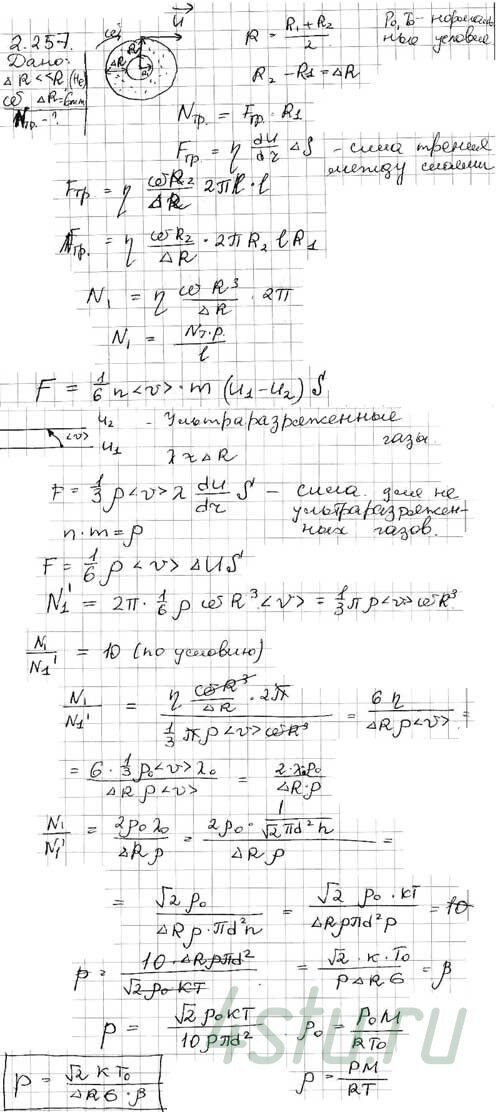 2.257.
Дано:
ΔR << R (He)
ω ΔR = 6 mm
Nтр. - ?
ω u
R
ΔR R1
R = (R1 + R2)/2
P0, T0 - нормальные условия
R2 - R1 = ΔR
Nтр. = Fтр. · R1
Fтр. = η du/dr ΔS - сила трения
между слоями
Fтр. = η ωR2/ΔR 2πR · l
Nтр. = η ωR2/ΔR · 2πR2 l R1
N1 = η ωR³/ΔR · 2π
N1 = Nтр./l
F = 1/6 n<v> · m (u1 - u2) S
u2 - Ультраразряженные
газы.
<v>
u1 λ ≈ ΔR
F = 1/3 ρ<v> λ du/dr S - сила для не
ультраразряжен-
ных газов.
n · m = ρ
F = 1/6 ρ <v> ΔU S
N1' = 2π · 1/6 ρ ωR³ <v> = 1/3 π ρ <v> ωR³
N1/N1' = 10 (по условию)
N1/N1' = (η ωR³/ΔR · 2π)/(1/3 π ρ <v> ωR³) = 6η/(ΔR ρ <v>) =
= (6 · 1/3 ρ0 <v> λ0)/(ΔR ρ <v>) = (2 · λ0ρ0)/(ΔR · ρ)
N1/N1' = 2ρ0 λ0/(ΔR ρ) = (2ρ0 · 1/(√2 πd²n))/(ΔR ρ) =
= √2 ρ0/(ΔR ρ · πd²n) = (√2 ρ0 · kT)/(ΔR ρπd²p) = 10
p = (10 · ΔR ρπd²)/(√2 ρ0 kT) = (√2 · k · T0)/(P ΔR σ) = β
p = √2 ρ0 kT/(10 ρπd²) ρ0 = P0 M/(RT0)
p = √2 k T0/(ΔR σ · β) ρ = PM/(RT)
4stu.ru